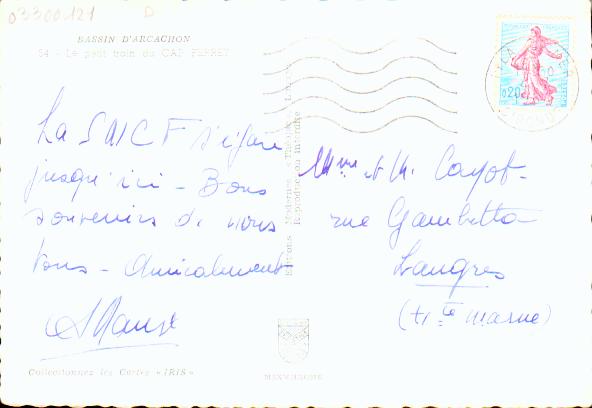 03300121 D
BASSIN D'ARCACHON
54 - Le petit train du CAP FERRET
La SNCF s'égare
jusqu'ici - Bons
souvenirs de nous
tous - Amicalement
Mme et M. Cayot -
rue Gambetta
Langres
(Hte marne)
0,20
Editions Modernes "Théojac", 
Reproduction interdite
Collectionnez les Cartes « IRIS »
MEXICHROME